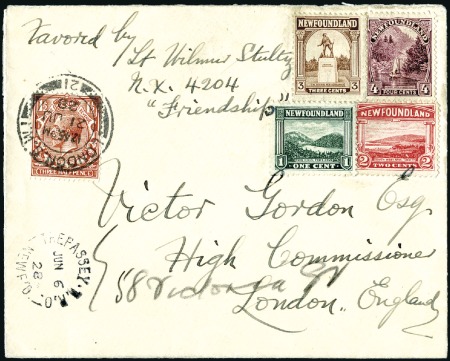 Favored by
Lt Wilmer Stultz
N.X. 4204
"Friendship"
NEWFOUNDLAND
3 THREE CENTS 3
NEWFOUNDLAND
4 FOUR CENTS 4
NEWFOUNDLAND
1 ONE CENT 1
NEWFOUNDLAND
2 TWO CENTS 2
LONDON
21 JU
28
THREE HALFPENCE
TREPASSEY.
JUN 6
28
Victor Gordon Esq.
High Commissioner
58 Victoria
London, England